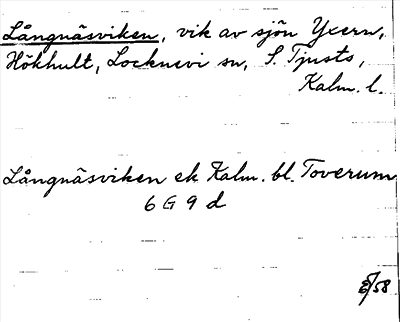 Långnäsviken, vik av sjön Yxern,
Hökhult, Locknevi sn, S. Tjusts,
Kalm. l.
Långnäsviken ek Kalm. bl. Toverum
6 G 9 d
/58